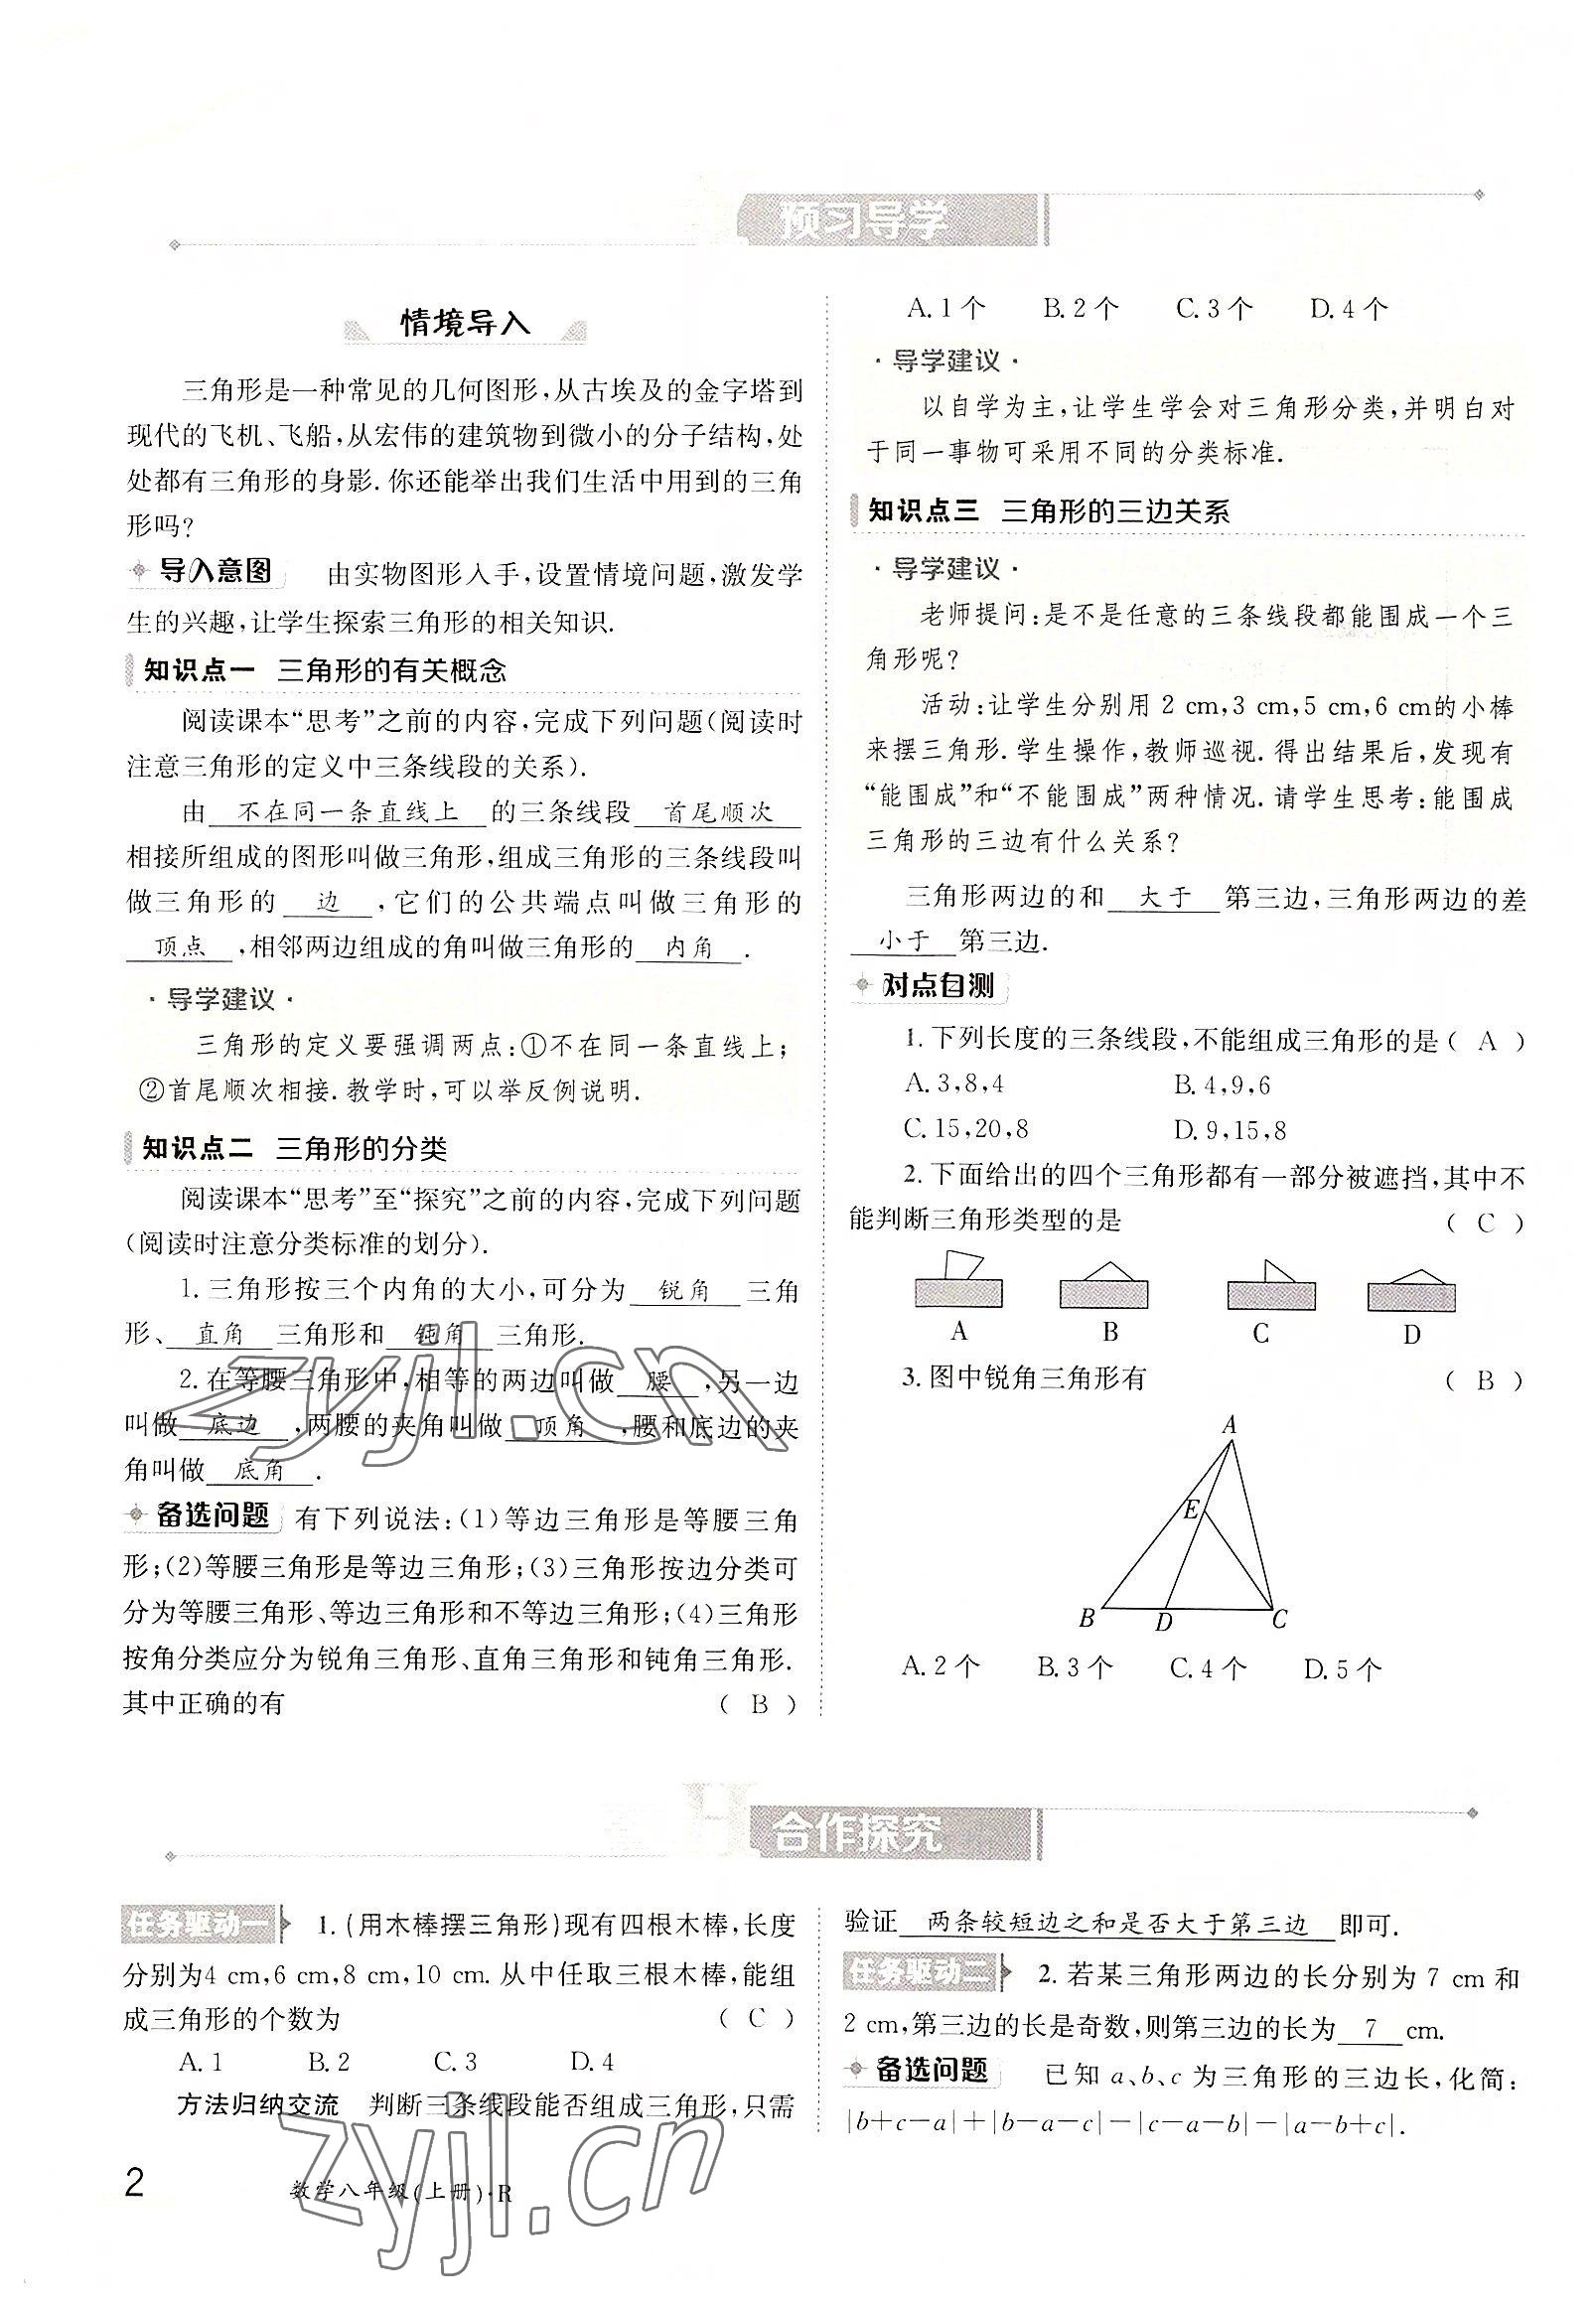 预习导学
情境导入
三角形是一种常见的几何图形,从古埃及的金字塔到
现代的飞机、飞船,从宏伟的建筑物到微小的分子结构,处
处都有三角形的身影.你还能举出我们生活中用到的三角
形吗?
导入意图 由实物图形入手,设置情境问题,激发学
生的兴趣,让学生探索三角形的相关知识.
知识点一 三角形的有关概念
阅读课本“思考”之前的内容,完成下列问题(阅读时
注意三角形的定义中三条线段的关系).
由 不在同一条直线上 的三条线段 首尾顺次
相接所组成的图形叫做三角形,组成三角形的三条线段叫
做三角形的 边 ,它们的公共端点叫做三角形的
顶点 ,相邻两边组成的角叫做三角形的 内角 .
·导学建议·
三角形的定义要强调两点:①不在同一条直线上;
②首尾顺次相接.教学时,可以举反例说明.
知识点二 三角形的分类
阅读课本“思考”至“探究”之前的内容,完成下列问题
(阅读时注意分类标准的划分).
1.三角形按三个内角的大小,可分为 锐角 三角
形、 直角 三角形和 钝角 三角形.
2.在等腰三角形中,相等的两边叫做 腰 ,另一边
叫做 底边 ,两腰的夹角叫做 顶角 ,腰和底边的夹
角叫做 底角 .
备选问题 有下列说法:(1)等边三角形是等腰三角
形;(2)等腰三角形是等边三角形;(3)三角形按边分类可
分为等腰三角形、等边三角形和不等边三角形;(4)三角形
按角分类应分为锐角三角形、直角三角形和钝角三角形.
其中正确的有 ( B )
A.1个 B.2个 C.3个 D.4个
·导学建议·
以自学为主,让学生学会对三角形分类,并明白对
于同一事物可采用不同的分类标准.
知识点三 三角形的三边关系
·导学建议·
老师提问:是不是任意的三条线段都能围成一个三
角形呢?
活动:让学生分别用 2 cm,3 cm,5 cm,6 cm的小棒
来摆三角形.学生操作,教师巡视.得出结果后,发现有
“能围成”和“不能围成”两种情况.请学生思考:能围成
三角形的三边有什么关系?
三角形两边的和 大于 第三边,三角形两边的差
小于 第三边.
对点自测
1.下列长度的三条线段,不能组成三角形的是( A )
A.3,8,4 B.4,9,6
C.15,20,8 D.9,15,8
2.下面给出的四个三角形都有一部分被遮挡,其中不
能判断三角形类型的是 ( C )
A B C D
3.图中锐角三角形有 ( B )
A
E
B D C
A.2个 B.3个 C.4个 D.5个
合作探究
任务驱动一 1.(用木棒摆三角形)现有四根木棒,长度
分别为4 cm,6 cm,8 cm,10 cm.从中任取三根木棒,能组
成三角形的个数为 ( C )
A.1 B.2 C.3 D.4
方法归纳交流 判断三条线段能否组成三角形,只需
验证 两条较短边之和是否大于第三边 即可.
任务驱动二 2.若某三角形两边的长分别为 7 cm 和
2 cm,第三边的长是奇数,则第三边的长为 7 cm.
备选问题 已知 a、b、c 为三角形的三边长,化简:
|b+c-a|+|b-a-c|-|c-a-b|-|a-b+c|.
2 数学八年级(上册)·R
zyjl.cn
zyjl.cn